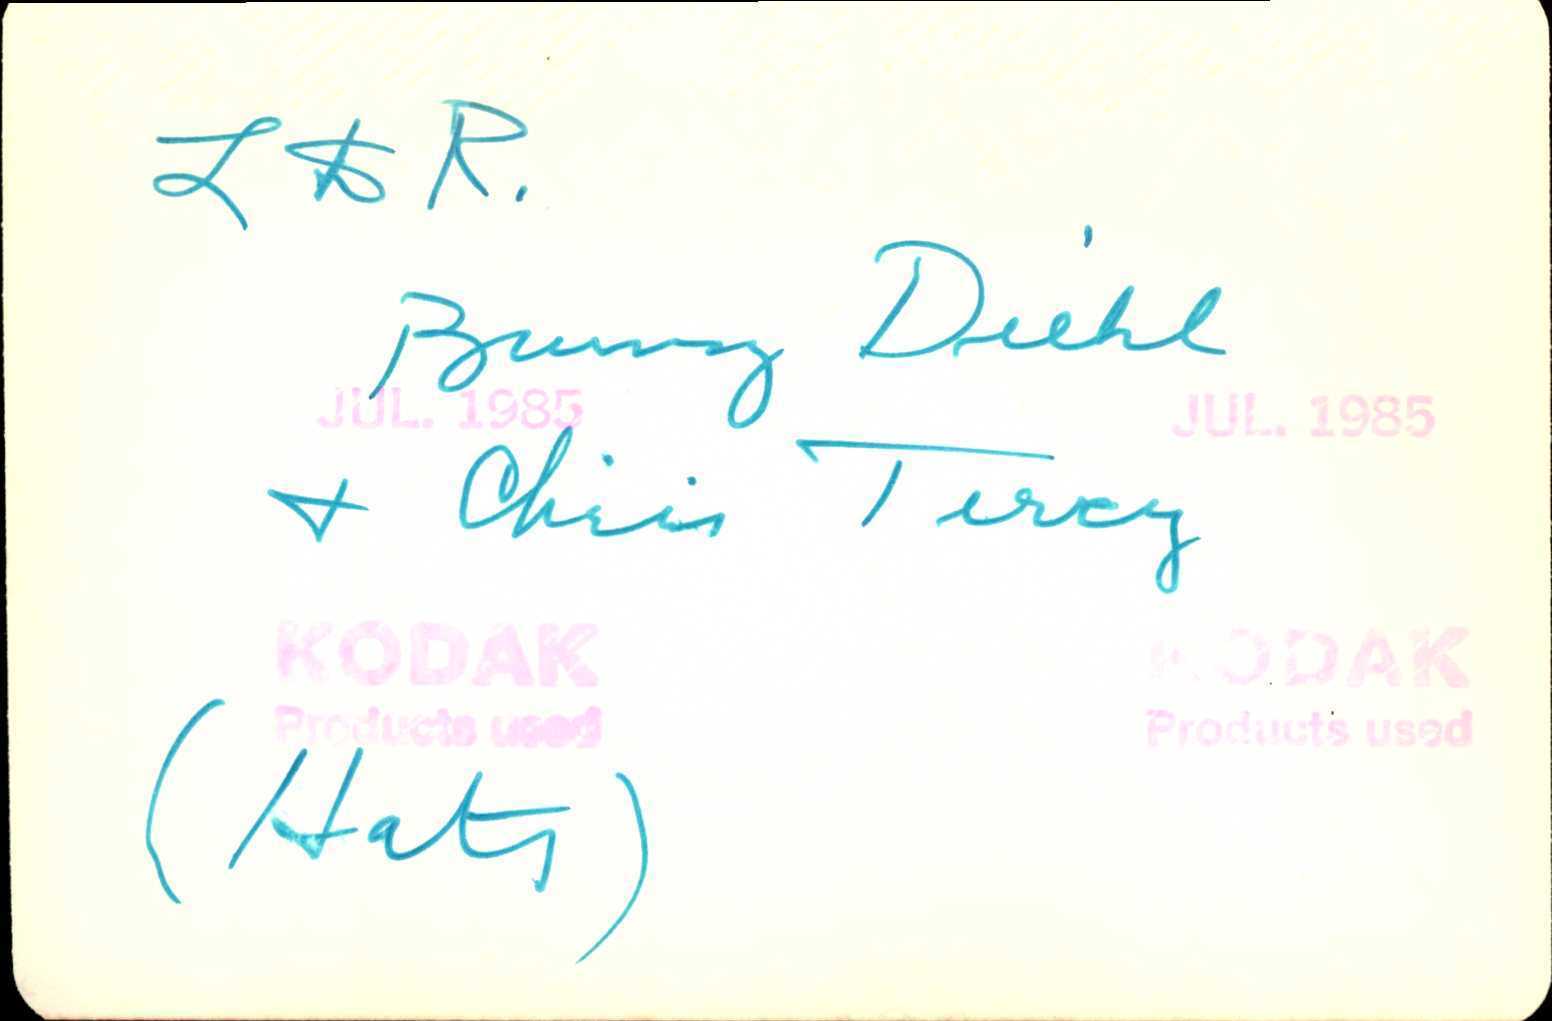 L to R.
Bunny Diehl
JUL. 1985 JUL. 1985
+ Chris
KODAK KODAK
Products used Products used
(Hats)